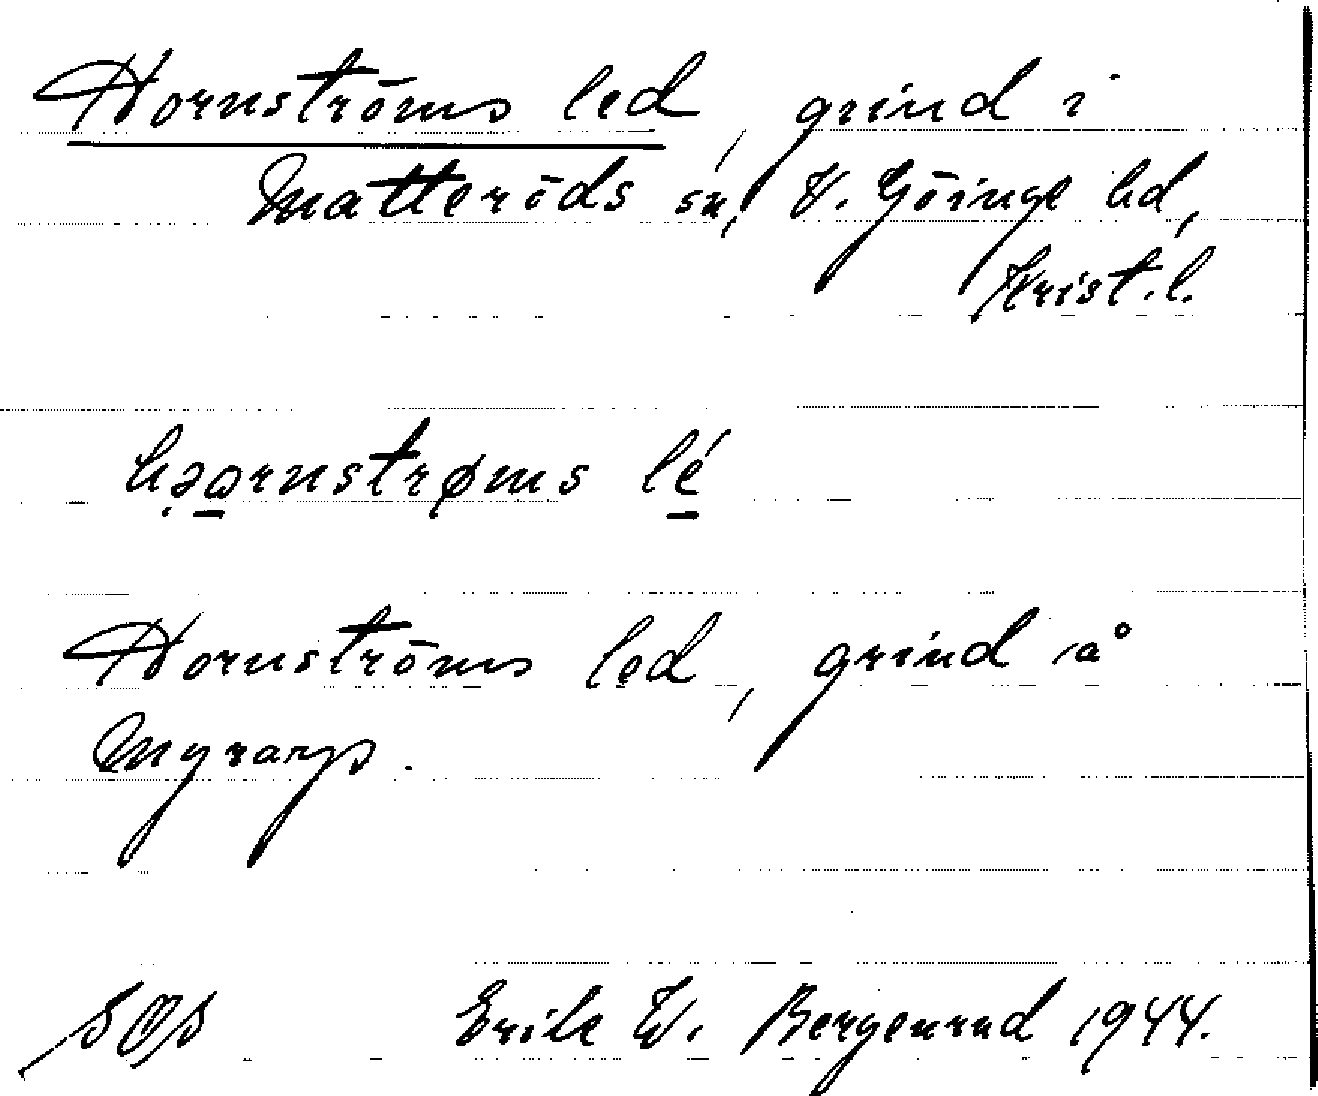 Hornströms led, grind i
Matteröds sn, V. Göinge hd,
Krist. l.
hǝọrnstrøms lé
Hornströms led, grind å
Myrarp.
Erik W. Bergenrud 1944.